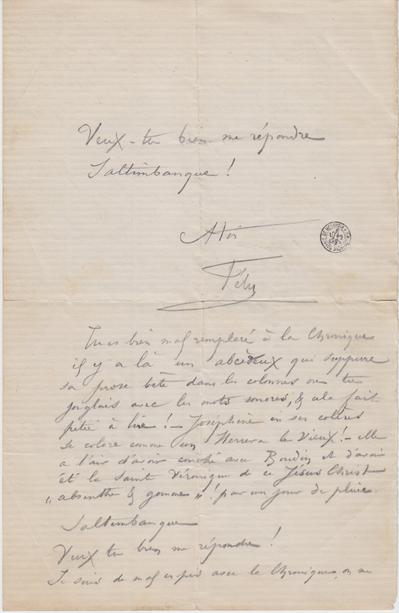 Veux-tu bien me répondre
Saltimbanque!
A toi
Fély
Tu es bien mal remplacé à la Chronique
il y a là un abcédeux qui suppure
sa prose bête dans les colonnes où tu
jonglais avec les mots sonores, & cela fait
pitié à lire! – Joséphine in ses colères
se colore comme un Herrera le Vieux! – Elle
a l'air d'avoir avec Baudin et d'avoir
été la Saint Véronique de ce Jésus Christ
"absinthe & gomme"! par un jour de pluie.
Saltimbanque
Veux tu bien me répondre!
Je suis de mal en pis avec la Chronique, on me